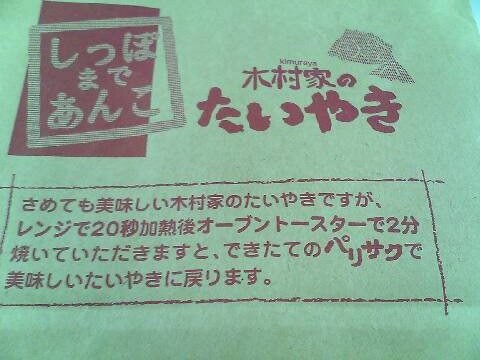 しっぽ
まで
あんこ
kimuraya
木村家の
たいやき
さめても美味しい木村家のたいやきですが、
レンジで20秒加熱後オーブントースターで2分
焼いていただきますと、できたてのパリサクで
美味しいたいやきに戻ります。